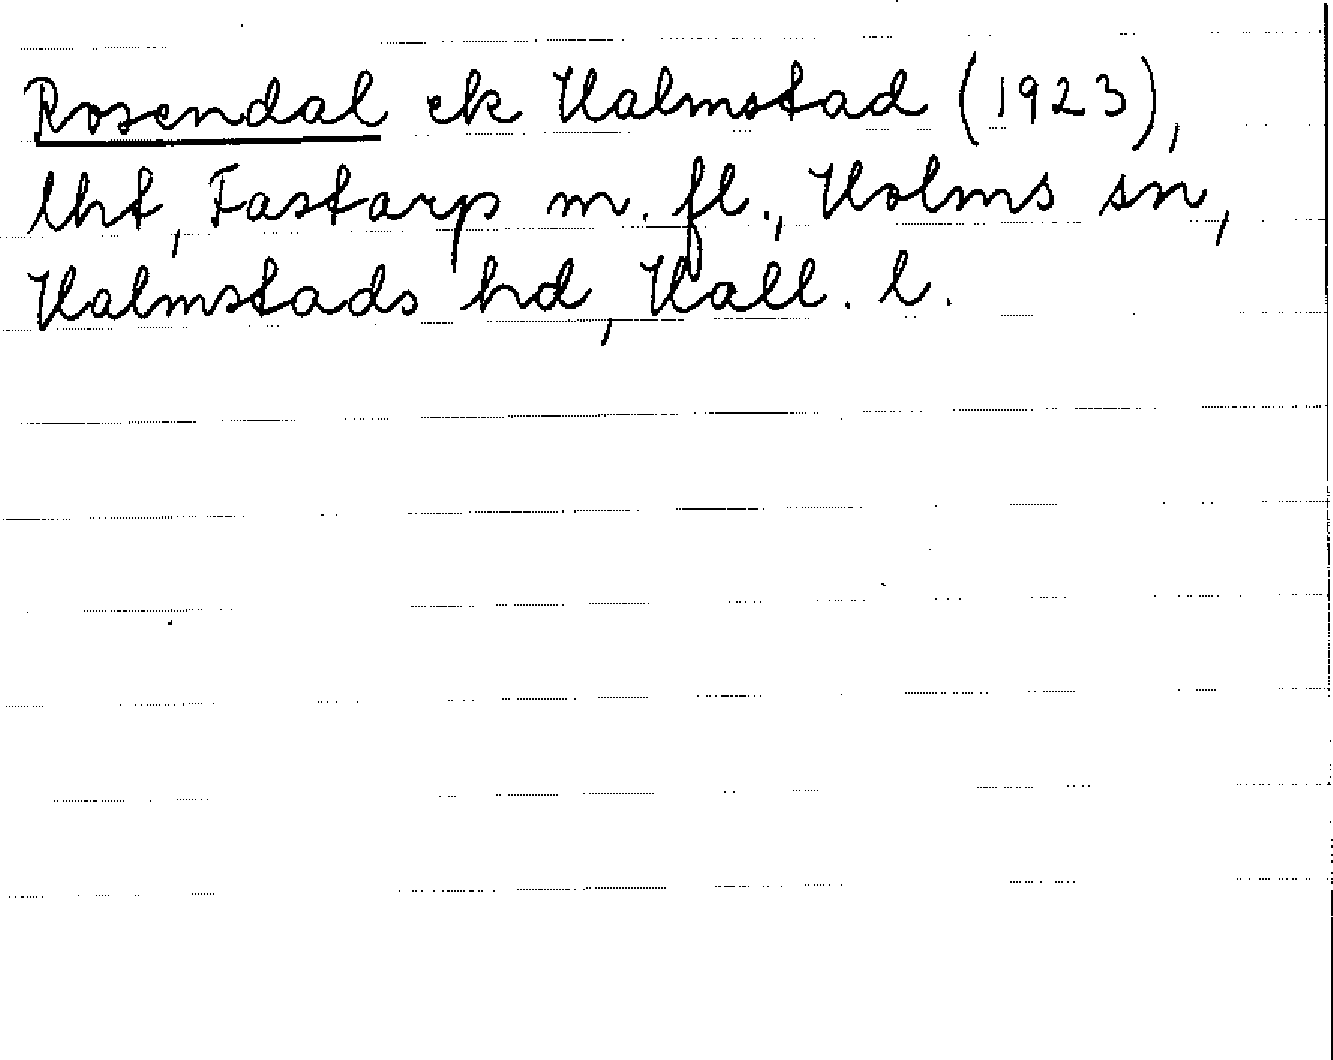 Rosendal ek Halmstad (1923),
lht, Fastarp m. fl., Holms sn,
Halmstads hd, Hall. l.